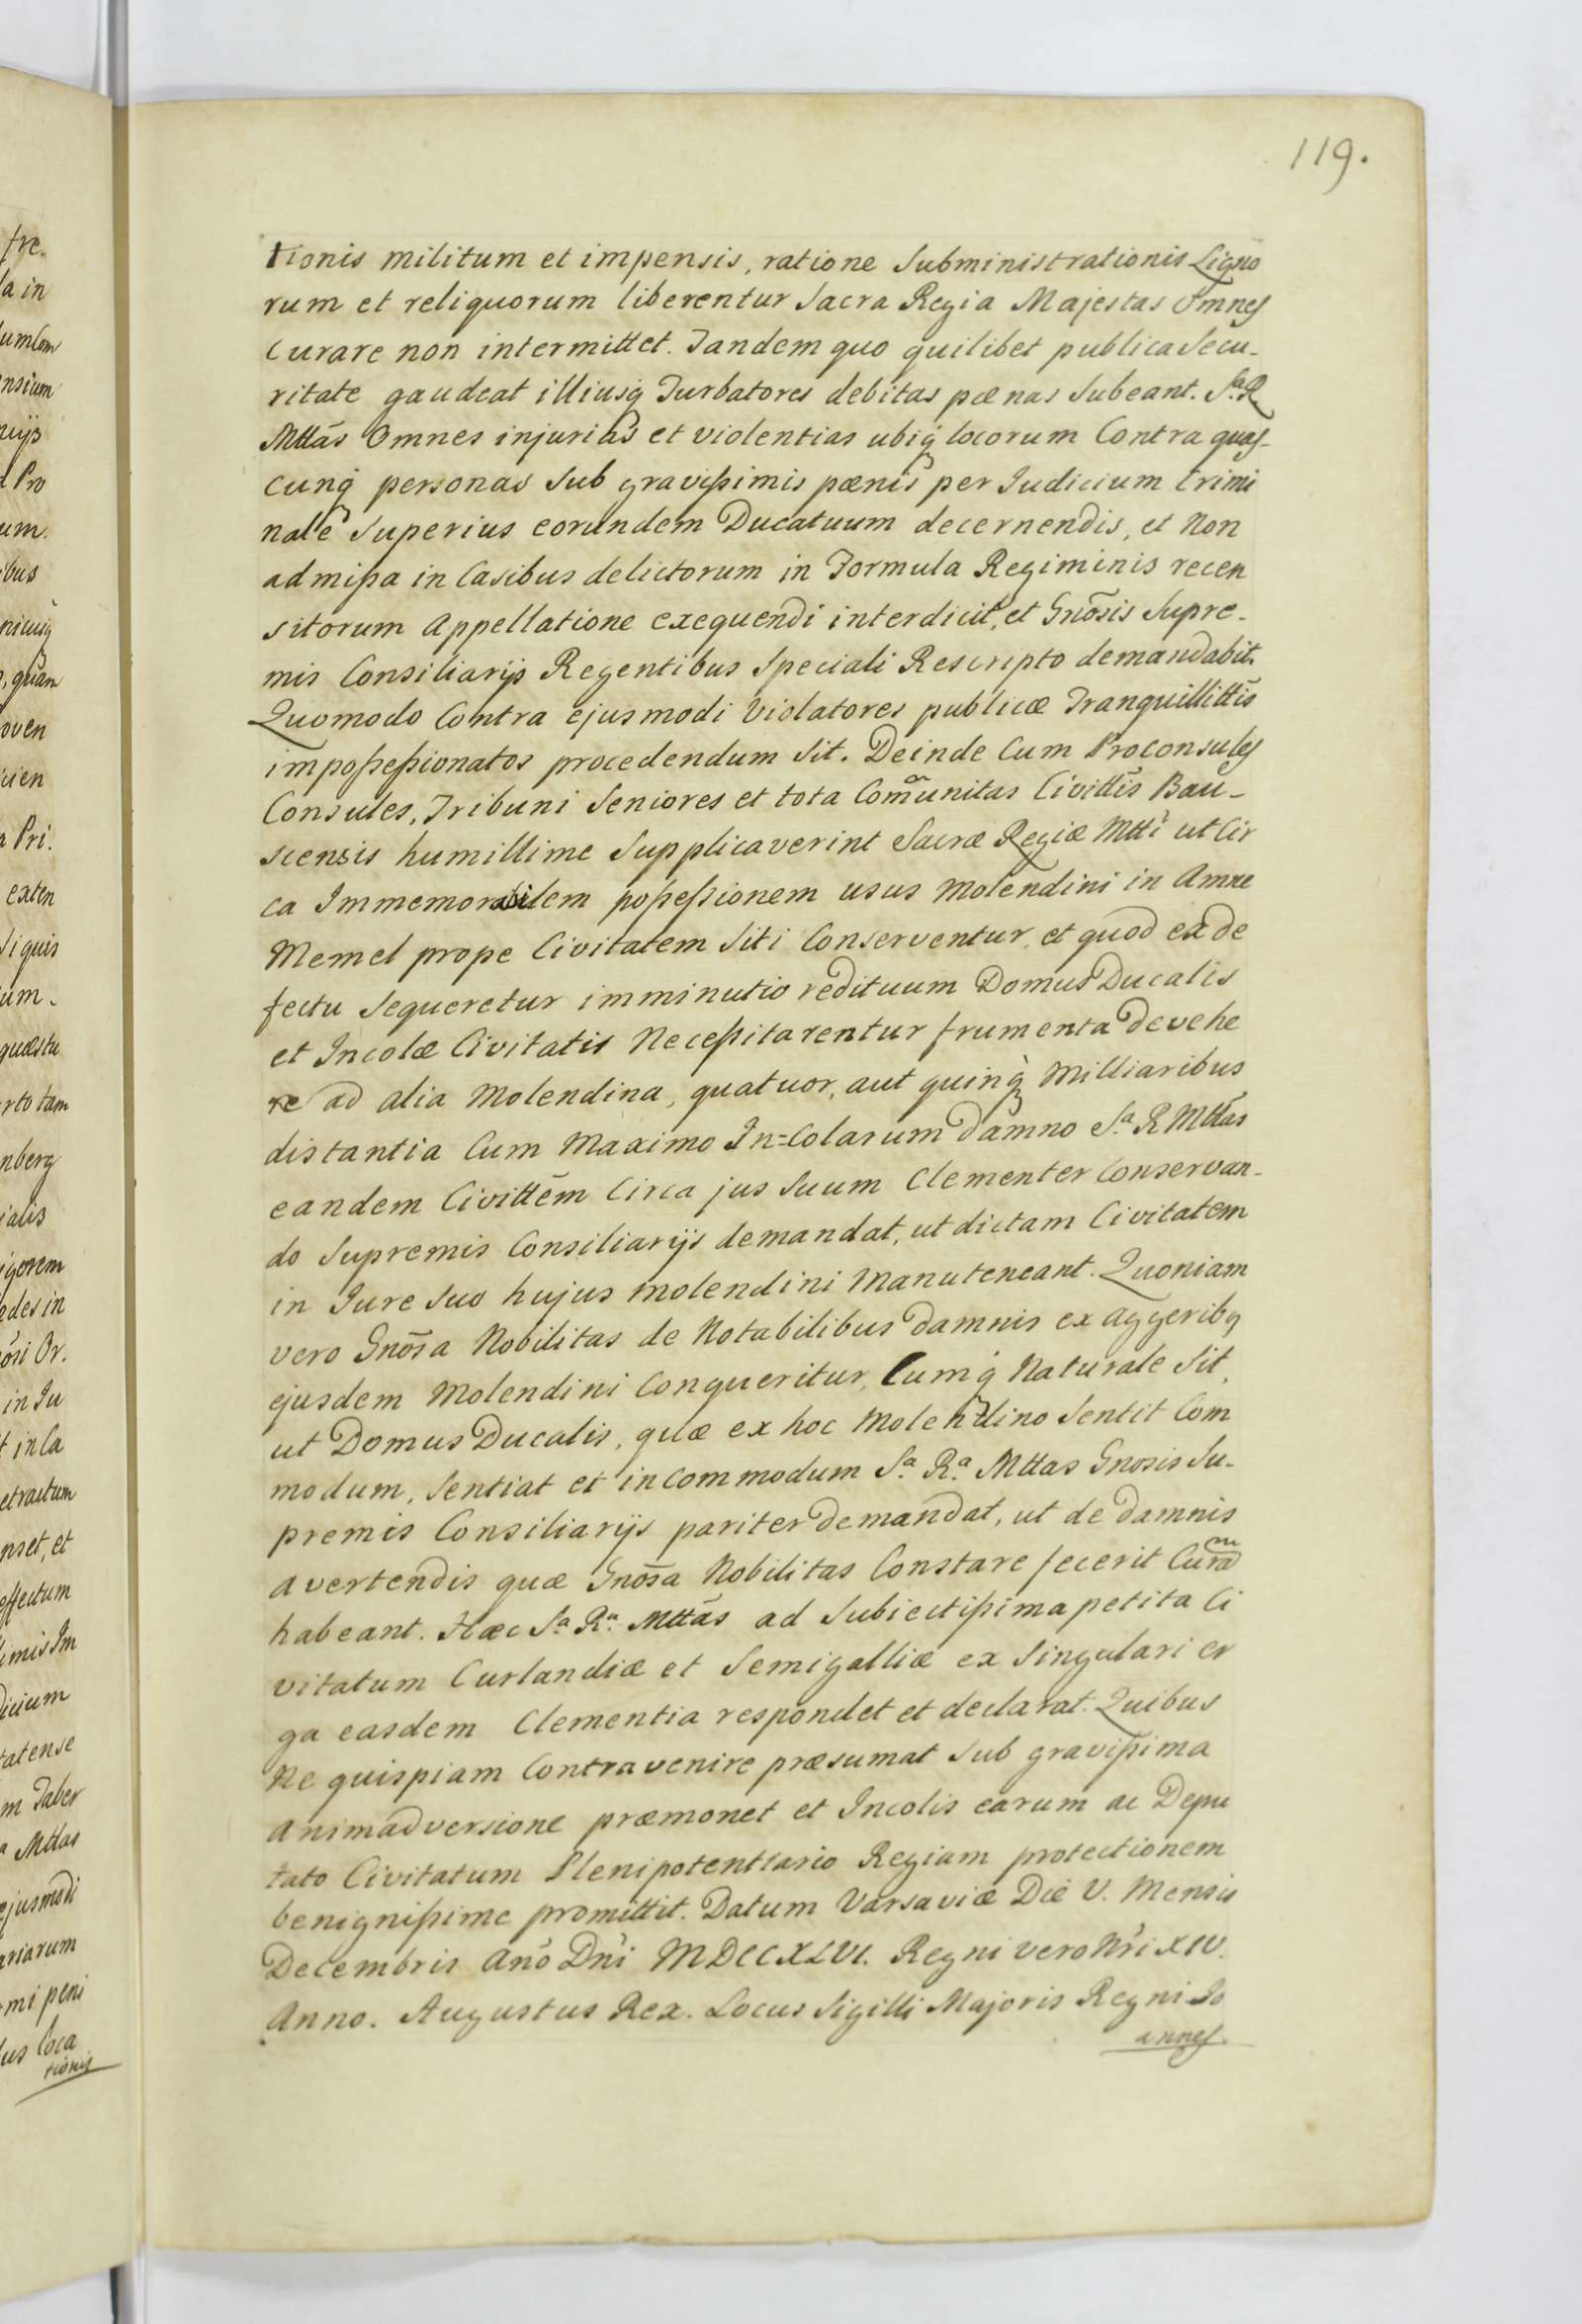 119.
tionis militum et impensis, ratione Subministrationis Ligno
rum et reliquorum liberentur Sacra Regia Majestas Omnes
Curare non intermittet. Tandem quo quilibet publica Secu-
ritate gaudeat illiusq Turbatores debitas pænas Subeant. Sa. R
Mttãs Omnes injurias et violentias ubiq locorum Contra quas-
cunq personas Sub gravißimis pænis per Iudicium Crimi
nale Superius eorundem Ducatuum decernendis, et Non
admißa in Casibus delictorum in Formula Regiminis recen
sitorum Appellatione exequendi interdicit, et Gnõsis Supre-
mis Consiliarijs Regentibus Speciali Rescripto demandabit.
Quomodo Contra ejusmodi Violatores publicæ Tranquillittis
impoßeßionatos procedendum Sit. Deinde Cum Proconsules
Consules, Tribuni Seniores et tota Com̃unitas Civittis Bau-
scensis humillime Supplicaverint Sacræ Regiæ Mtti ut Cir
ca Immemorabilem poßeßionem usus Molendini in Amne
Memel prope Civitatem Siti Conserventur, et quod ex de
fectu Sequeretur imminutio redituum Domus Ducalis
et Incolæ Civitatis Neceßitarentur frumenta devehe
re ad alia Molendina, quatuor, aut quinq Milliaribus
distantia Cum Maximo In=Colarum damno Sa. R Mttãs
eandem Civittẽm Circa jus Suum Clementer Conservan-
do Supremis Consiliarijs demandat, ut dictam Civitatem
in Iure Suo hujus Molendini Manuteneant. Quoniam
vero Gnõsa Nobilitas de Notabilibus damnis ex aggeribq
ejusdem Molendini Conqueritur, Cumq Naturale Sit,
ut Domus Ducalis, quæ ex hoc Molendino Sentit Com
modum, Sentiat et incommodum Sa. Ra. Mttas Gnosis Su-
premis Consiliarijs pariter demandat, ut de damnis
avertendis quæ Gnõsa Nobilitas Constare fecerit Curam
habeant. Hæc Sa. Ra. Mttãs ad Subiectißima petita Ci
vitatum Curlandiæ et Semigalliæ ex Singulari er
ga easdem Clementia respondet et declarat. Quibus
Ne quispiam Contravenire præsumat Sub gravißima
Animadversione præmonet et Incolis earum ac Depu
tato Civitatum Plenipotentiario Regiam protectionem
benignißime promittit. Datum Varsaviæ Die V. Mensis
Decembris Año Dñi MDCCXLVI. Regni vero Nri XIV.
Anno. Augustus Rex. Locus Sigilli Majoris Regni Jo
annes.